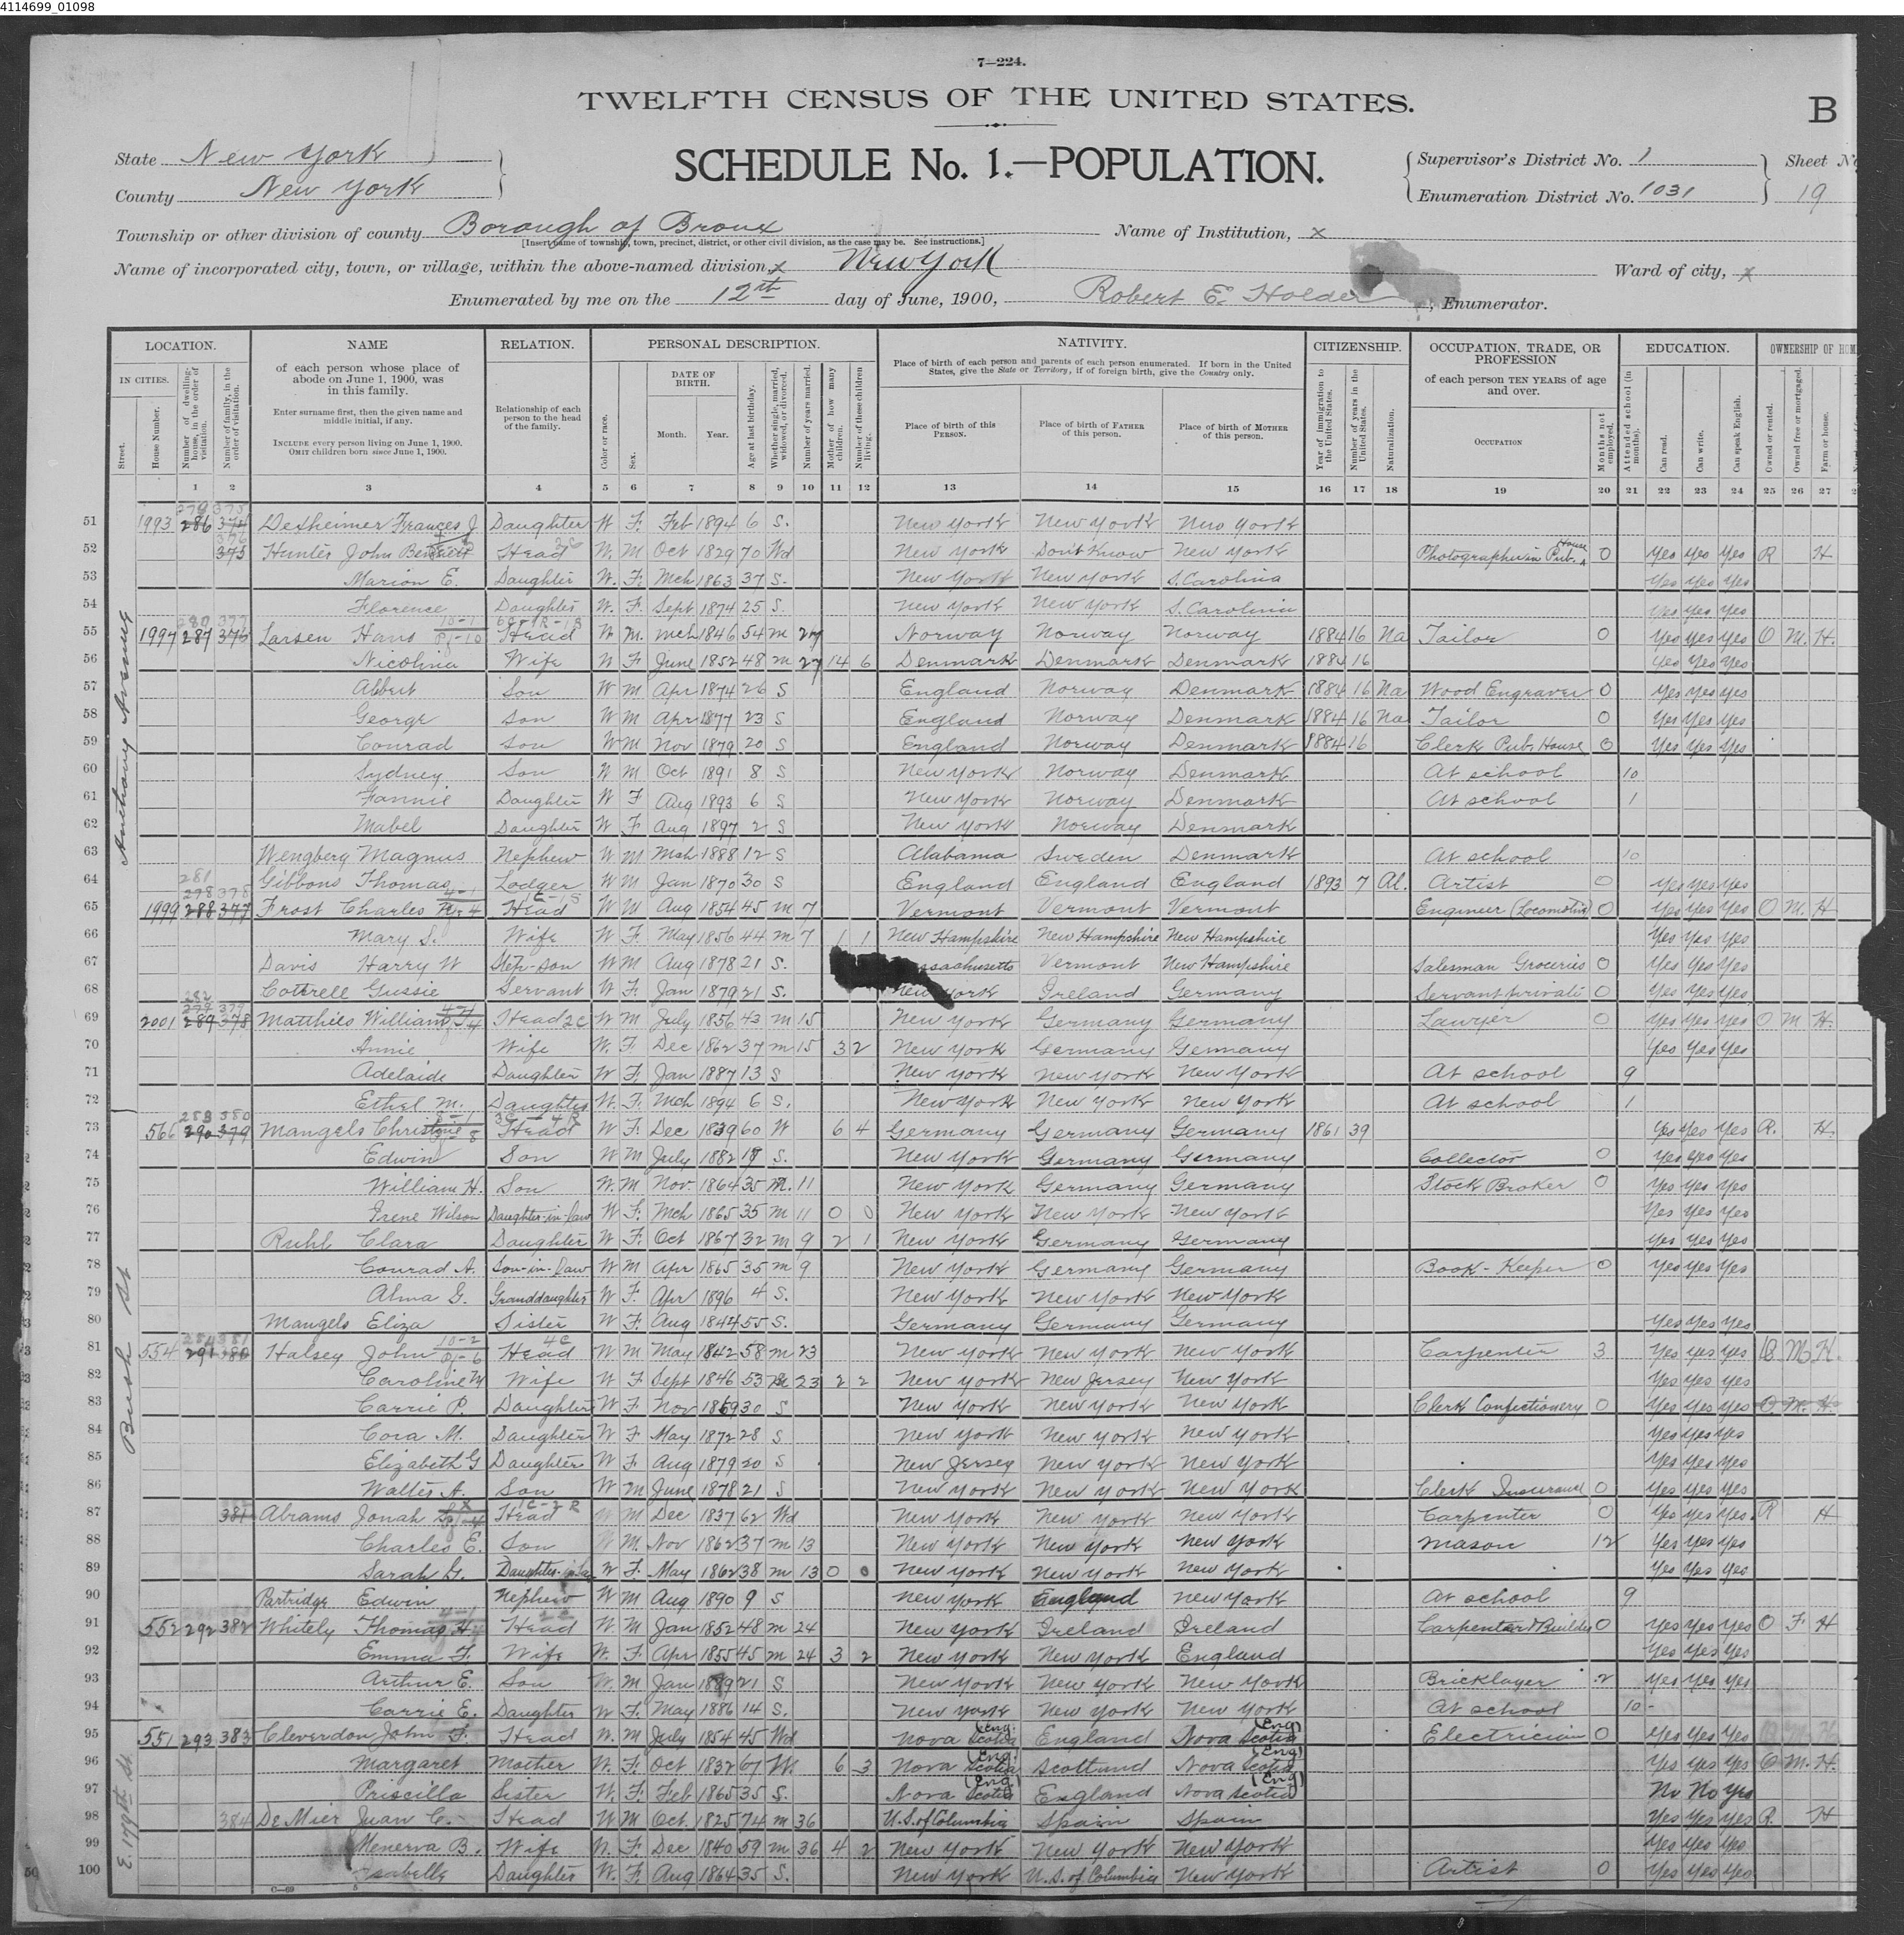 4114699_01098
7—224.
TWELFTH CENSUS OF THE UNITED STATES.
B
State New York
SCHEDULE No. 1.—POPULATION.
Supervisor's District No. 1
Sheet No
County New York
Enumeration District No. 1031
19
Township or other division of county Borough of Bronx
[Insert name of township, town, precinct, district, or other civil division, as the case may be. See instructions.]
Name of Institution, x
Name of incorporated city, town, or village, within the above-named division, x New York
Ward of city, x
Enumerated by me on the 12th day of June, 1900, Robert E. Holder, Enumerator.
LOCATION. NAME RELATION. PERSONAL DESCRIPTION. NATIVITY. CITIZENSHIP. OCCUPATION, TRADE, OR PROFESSION EDUCATION. OWNERSHIP OF HOM
IN CITIES. Street. House Number. Number of dwelling-house, in the order of visitation. Number of family, in the order of visitation.
of each person whose place of abode on June 1, 1900, was in this family.
Enter surname first, then the given name and middle initial, if any.
INCLUDE every person living on June 1, 1900.
OMIT children born since June 1, 1900.
Relationship of each person to the head of the family.
Color or race. Sex. DATE OF BIRTH. Month. Year. Age at last birthday. Whether single, married, widowed, or divorced. Number of years married. Mother of how many children. Number of these children living.
Place of birth of each person and parents of each person enumerated. If born in the United States, give the State or Territory, if of foreign birth, give the Country only.
Place of birth of this PERSON. Place of birth of FATHER of this person. Place of birth of MOTHER of this person.
Year of immigration to the United States. Number of years in the United States. Naturalization.
of each person TEN YEARS of age and over.
OCCUPATION Months not employed. Attended school (in months). Can read. Can write. Can speak English. Owned or rented. Owned free or mortgaged. Farm or house.
1 2 3 4 5 6 7 8 9 10 11 12 13 14 15 16 17 18 19 20 21 22 23 24 25 26 27
Anthony Avenue
51 1993 286 374 Desheimer Frances J Daughter W F. Feb 1894 6 S. New York New York New York
52 375 Hunter John Head W. M Oct 1829 70 Wd New York Don't Know New York Photographer in Pub. House 0 Yes Yes Yes R H
53 Marion E. Daughter W. F. Mch 1863 37 S. New York New York S. Carolina Yes Yes Yes
54 Florence Daughter W. F. Sept 1874 25 S. New York New York S. Carolina Yes Yes Yes
55 1997 287 376 Larsen Hans Head W M. Mch 1846 54 M 27 Norway Norway Norway 1884 16 Na Tailor 0 Yes Yes Yes O M. H.
56 Nicolina Wife W F June 1852 48 M 27 14 6 Denmark Denmark Denmark 1884 16 Yes Yes Yes
57 Albert Son W M Apr 1874 26 S England Norway Denmark 1884 16 Na Wood Engraver 0 Yes Yes Yes
58 George Son W M Apr 1877 23 S England Norway Denmark 1884 16 Na Tailor 0 Yes Yes Yes
59 Conrad Son W M Nov 1879 20 S England Norway Denmark 1884 16 Clerk Pub. House 0 Yes Yes Yes
60 Sydney Son W M Oct 1891 8 S New York Norway Denmark At school 10
61 Fannie Daughter W F Aug 1893 6 S New York Norway Denmark At school 1
62 Mabel Daughter W F Aug 1897 2 S New York Norway Denmark
63 Wengberg Magnus Nephew W M Mch 1888 12 S Alabama Sweden Denmark At school 10
64 Gibbons Thomas Lodger W M Jan 1870 30 S England England England 1893 7 Al. Artist 0 Yes Yes Yes
65 1999 288 377 Frost Charles Head W M Aug 1854 45 M 7 Vermont Vermont Vermont Engineer (Locomotive) 0 Yes Yes Yes O M. H
66 Mary S. Wife W F. May 1856 44 M 7 1 1 New Hampshire New Hampshire New Hampshire Yes Yes Yes
67 Davis Harry W Step-son W M Aug 1878 21 S. Massachusetts Vermont New Hampshire Salesman Groceries 0 Yes Yes Yes
68 Cottrell Gussie Servant W F. Jan 1879 21 S. New York Ireland Germany Servant private 0 Yes Yes Yes
69 2001 289 378 Matthies William Head W M July 1856 43 M 15 New York Germany Germany Lawyer 0 Yes Yes Yes O M H.
70 Annie Wife W. F. Dec 1862 37 M 15 3 2 New York Germany Germany Yes Yes Yes
71 Adelaide Daughter W F. Jan 1887 13 S New York New York New York At school 9
72 Ethel M. Daughter W. F. Mch 1894 6 S. New York New York New York At school 1
Bush St
73 566 290 379 Mangels Christine Head W F. Dec 1839 60 W 6 4 Germany Germany Germany 1861 39 Yes Yes Yes R. H.
74 Edwin Son W M July 1882 17 S. New York Germany Germany Collector 0 Yes Yes Yes
75 William H. Son W. M Nov. 1864 35 M. 11 New York Germany Germany Stock Broker 0 Yes Yes Yes
76 Irene Wilson Daughter-in-law W F. Mch 1865 35 M 11 0 0 New York New York New York Yes Yes Yes
77 Ruhl Clara Daughter W F. Oct 1867 32 M 9 2 1 New York Germany Germany Yes Yes Yes
78 Conrad A. Son-in-law W M Apr 1865 35 M 9 New York Germany Germany Book-Keeper 0 Yes Yes Yes
79 Alma G. Granddaughter W F. Apr 1896 4 S. New York New York New York
80 Mangels Eliza Sister W F. Aug 1844 55 S. Germany Germany Germany Yes Yes Yes
81 554 291 380 Halsey John Head W M May 1842 58 M 23 New York New York New York Carpenter 3 Yes Yes Yes O M H.
82 Caroline M Wife W F Sept 1846 53 M 23 2 2 New York New Jersey New York Yes Yes Yes
83 Carrie P. Daughter W F Nov 1869 30 S New York New York New York Clerk Confectionery 0 Yes Yes Yes O M. H.
84 Cora M. Daughter W F May 1872 28 S New York New York New York Yes Yes Yes
85 Elizabeth G Daughter W F Aug 1879 20 S New Jersey New York New York Yes Yes Yes
86 Walter A. Son W M June 1878 21 S New York New York New York Clerk Insurance 0 Yes Yes Yes
87 381 Abrams Jonah Head W M Dec 1837 62 Wd New York New York New York Carpenter 0 Yes Yes Yes R H
88 Charles E. Son W M. Nov 1862 37 M 13 New York New York New York Mason 12 Yes Yes Yes
89 Sarah G. Daughter-in-law W F. May 1862 38 M 13 0 0 New York New York New York Yes Yes Yes
90 Partridge Edwin Nephew W M Aug 1890 9 S New York England New York At school 9
91 552 292 382 Whitely Thomas H. Head W M Jan 1852 48 M 24 New York Ireland Ireland Carpenter & Builder 0 Yes Yes Yes O F H
92 Emma F. Wife W. F. Apr 1855 45 M 24 3 2 New York New York England Yes Yes Yes
93 Arthur E. Son W. M Jan 21 S New York New York New York Bricklayer 2 Yes Yes Yes
94 Carrie E. Daughter W F. May 1886 14 S. New York New York New York At school 10
E. 179th St.
95 551 293 383 Cleverdon John F. Head W. M July 1854 45 Wd Nova Scotia (Eng.) England Nova Scotia (Eng) Electrician 0 Yes Yes Yes
96 Margaret Mother W. F. Oct 1832 67 W. 6 3 Nova Scotia (Eng.) Scotland Nova Scotia (Eng) Yes Yes Yes O M. H.
97 Priscilla Sister W. F. Feb 1865 35 S. Nova Scotia (Eng.) England Nova Scotia (Eng) No No Yes
98 384 De Mier Juan C. Head W M Oct. 1825 74 M 36 U.S. of Columbia Spain Spain Yes Yes Yes R. H
99 Menerva B. Wife W. F. Dec 1840 59 M 36 4 2 New York New York New York Yes Yes Yes
100 Isabelle Daughter W. F. Aug 1864 35 S. New York U.S. of Columbia New York Artist 0 Yes Yes Yes